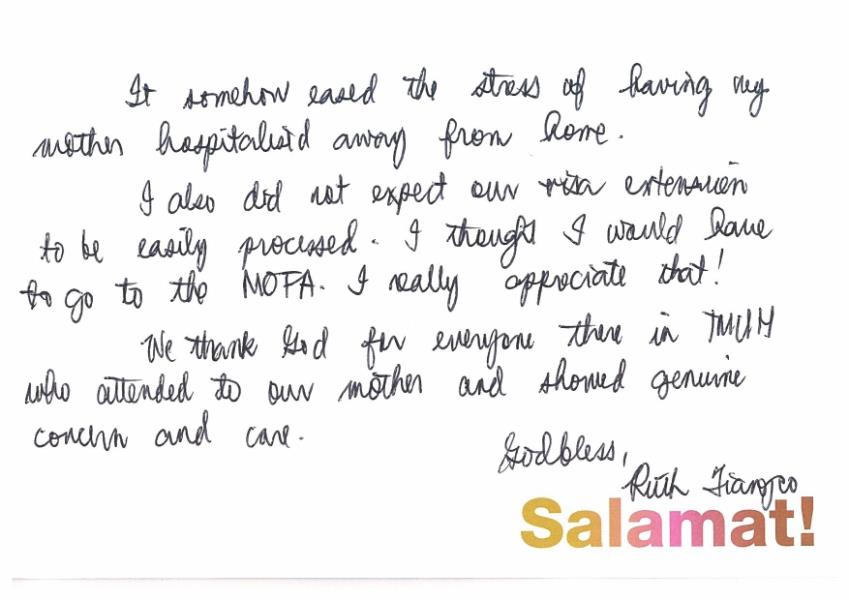 It somehow eased the stress of having my
mother hospitalized away from home.
I also did not expect our visa extension
to be easily processed. I thought I would have
to go to the MOFA. I really appreciate that!
We thank God for everyone there in TMUH
who attended to our mother and showed genuine
concern and care.
Godbless,
Ruth
Salamat!